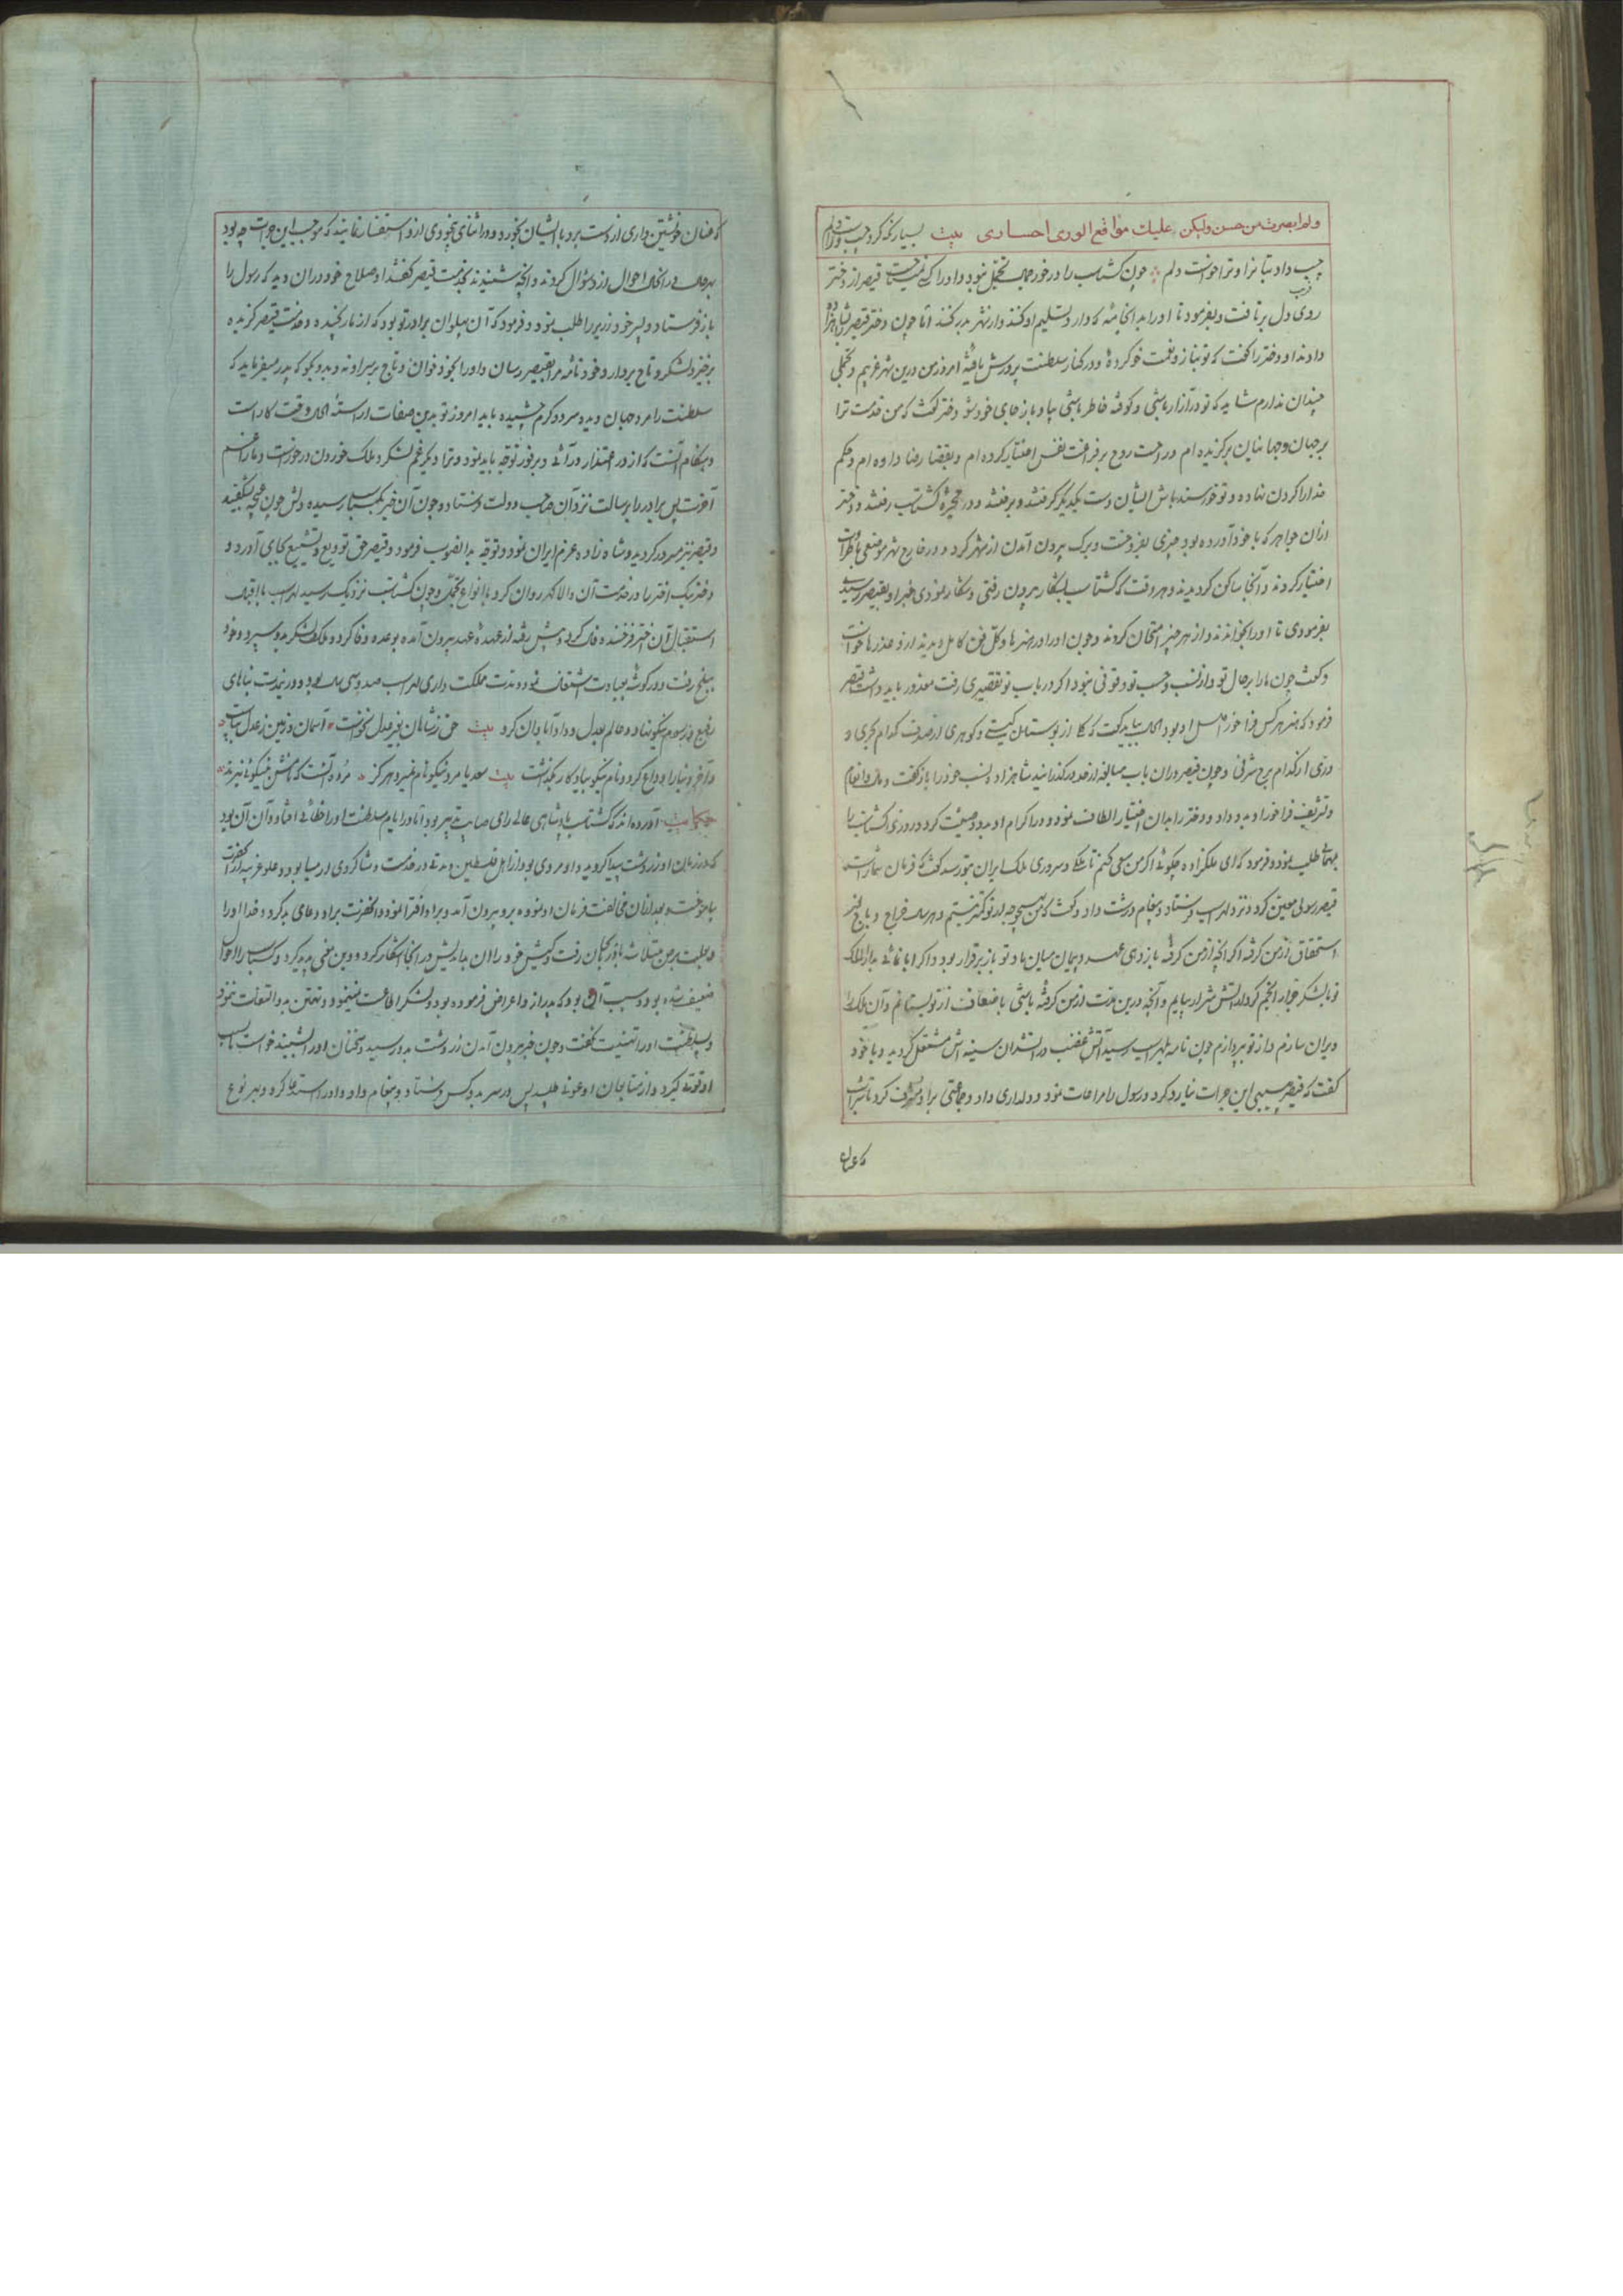 ولم ابصرت من حسن ولکن علیك من الوری احساری بیت بسیار نکه کرد چپ و راست دلم
چپ داد بتا نرا و ترا خواست دلم چون کشتاسب را در خور حال تجمل نبود و او را کسی نمیشناخت قیصر از دختر
روی دل برتافت و بفرمود تا او را بدانجامه که دارد تسلیم او کنند و از شهر بدر کنند اما چون دختر قیصر را بشاهزاده
دادند او دختر را کفت که تو بناز و نعمت خو کردهٔ و در کنار سلطنت پرورش یافتهٔ امروز من درین شهر غریبم و تجملی
چندان ندارم شاید که تو در آزار باشی و کوفته خاطر باشی بیا و باز جای خود شو دختر کفت که من خدمت ترا
بر جهان و جهانیان برکزیده ام و راحت روح بر فراغت نفس اختیار کرده ام و بقضا رضا داده ام و حکم
خدا را کردن نهاده و تو خورسند باش ایشان دست یکدیکر کرفتند و برفتند و در حجیرهٔ کشتاسب رفتند و دختر
ازان جواهر که با خود آورده بود چیزی بفروخت و برک بیرون آمدن از شهر کرد و در خارج شهر موضعی باطراوت
اختیار کردند و آنجا ساکن کردیدند و هر وقت که کشتاسب بشکار بیرون رفتی و شکار نمودی خبر او بقیصر رسیدی
بفرمودی تا او را بخواندند و از هر چیز امتحان کردند و چون او را در هنرها و کل فن کامل دیدند ازو عذرها خواست
و کفت چون ما را بر حال تو و از نسب و حسب تو وقوفی نبود اکر در باب تو تقصیری رفت معذور باید داشت قیصر
فرمود که هنر هر کس فراخور اصل او بود اکنون بباید کفت که کل از بوستان کیستی و کوهری از صدف کدام بحری و
دری از کدام برج شرفی و چون قیصر دران باب مبالغه از حد در کذرانید شاهزاده نسب خود را باز کفت و مال و انعام
و تشریف فراخور او بدو داد و دختر را بدان اختیار الطاف نمود و در اکرام او بدو وصیت کرد و روزی کشتاسب را
بمهمانی طلب نمود و فرمود که ای ملکزاده چکوئی اکر من سعی کنم تا ملک و سروری ملک ایران بتو رسد کفت که فرمان شماراست
قیصر رسولی معین کرد و نزد لهراسب فرستاد و پیغام درشت داد و کفت که من بهیچ وجه از تو کمتر نیستم و هر سال خراج و باج بغیر
استحقاق از من کرفته اکر آنچه از من کرفته باز دهی عهد و پیمان میان ما و تو باز برقرار بود و اکر ابا نمائی بدار الملک
تو با لشکر جرار انجم کردار آتش شرار بیایم و آنچه درین مدت از من کرفته باشی باضعاف از تو بستانم و آن ملک را
ویران سازم و از تو بپردازم چون نامه بلهراسب رسید آتش غضب در آتشدان سینه اش مشتعل کردید و با خود
کفت که قیصر بی سببی این جرات نیارد کرد و رسول را مراعات نمود و دلداری داد و جماعتی برو مشرف کرد تا شراب
تا عنان
تا عنان خویشتن داری از دست برد با ایشان بخورد و در اثنای بیخودی ازو استفسار نمایند که موجب این جرات چه بود
بر حال در انحال احوال ازو سؤال کردند و آنچه شنیدند بخدمت قیصر کفتند او صلاح خود دران دید که رسول را
باز فرستاد و پسر خود زریر را طلب نمود و فرمود که آن پهلوان برادر تو بود که از ما رنجیده و خدمت قیصر کزیده
برخیز و لشکر و تاج بردار و خود نامه مرا بقیصر رسان و او را بخود خوان و تاج بر سر او نه و بدو بکو که پدر میفرماید که
سلطنت را مرد جهان دیده و سرد و کرم چشیده باید امروز تو بدین صفات آراستهٔ اکنون وقت کار است
و هنکام آنست که از در اعتذار درآئی و بر فور توجه باید نمود و ترا دیکر غم لشکر و ملک خوردن در خور است و ما را غم
آخرت پس برادر را برسالت نزد آن صاحب دولت فرستاد و چون آن خبر بکشتاسب رسید دلش چون غنچه بشکفید
و قیصر نیز مسرور کردید و شاه زاده عزم ایران نمود و توجه بدانصوب فرمود و قیصر حق تودیع و تشییع بجای آورد و
دختر نیک اختر را در خدمت آن والا کهر روان کرد با انواع تجمل و چون کشتاسب نزدیک رسید لهراسب با
استقبال آن اختر فرخنده فال کرد و پیش رفته از عهدهٔ عهد بیرون آمده بوعده وفا کرد و ملک و لشکر بدو سپرد و خود
ببلخ رفت و در کوشه بعبادت اشتغال نمود و مدت مملکت داری لهراسب صد و سی سال بود و در نمدت بناهای
رفیع و رسوم نیکو نهاد و عالم بعدل و داد آبادان کرد بیت حق ز شاهان بغیر عدل نخواست آسمان و زمین ز عدل بپاست
و آخر دنیا را وداع کرد و نام نیکو بیادکار بکذشت بیت سعدیا مرد نیکو نام نمیرد هرکز مرده آنست که نامش بنیکوئی نبرند
حکایت آورده اند که کشتاسب پادشاهی عالی رای صایب تدبیر بود اما در ایام سلطنت او را خطائی افتاد و آن آن بود
که در زمان او زردشت پیدا کردید و او مردی بود از اهل فلسطین و مدتی در خدمت و شاکردی ارمیا بود و علو غریبه از آنحضرت
بیاموخت و بعد ازان مخالفت فرمان او نمود و برو بیرون آمد و برو افترا نمود و آنحضرت برو دعای بد کرد و خدا او را
بعلت برص مبتلا ساخت باذربایجان رفت و کیش خود را ازان بداندیش در انجا آشکار کرد و دین مغی پدید کرد و کشتاسب را احوال
ضعیف شده بود و سبب آن بود که پدر ازو اعراض فرموده بود و لشکر اطاعت نمینمود و تهمتن بدو التفات ننمود
و بسلطنت او را تهنیت نکفت و چون خبر بیرون آمدن زردشت بدو رسید و سخنان او را شنید خواست که بسبب
او قوتی کیرد و از متابعان او عونی طلبد پس در سر بدو کس فرستاد و پیغام داد و او را استدعا کرد و بهر نوع